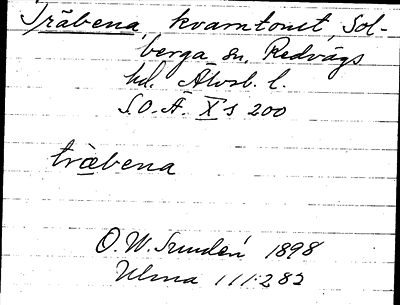 Träbena, kvarntomt, Sol-
berga sn, Redvägs
hd. Älvsb. l.
S.O.Ä. X:1 200
træbena
O. W. Sundén 1898
Ulma 111:282